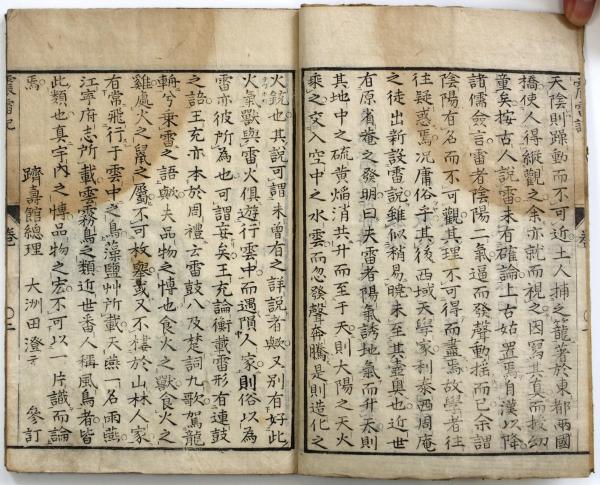 天陰則躁動而不可近土人捕之籠着於東都兩國
橋使人得縱觀之余亦就而視之因寫其真而授幼
童矣按古人說雷未有確論上古姑置焉自漢以降
諸儒僉言雷者陰陽二氣逼而發聲動搖而已余謂
陰陽有名而不可觀其理不可得而盡焉故學者往
往疑惑焉况庸俗乎其後西域天學家利泰西周庵
之徒出新設雷説雖似稍易曉未至其蘊奧也近世
有原省菴之發明曰夫雷者陽氣誘地氣而升天則
其地中之硫黄焰消共升而至于天則大陽之天火
乘之交入空中之水雲而忽發聲奔騰是則造化之
火銃也其説可謂未曾有之詳説者歟又別有好此
火氣獸與雷火俱遊行雲中而遇隕人家則俗以為
雷亦彼所為也可謂妄矣王充論衡載雷形有連鼓
之語王充亦本於周禮云雷鼓八及楚詞九歌駕龍
輈兮乘雷之語歟夫品物之博也食火之獸食火之
雞處火之鼠之屬不可枚舉或又不棲於山林人家
有常飛行于雲中之鳥藻鹽艸所載天燕一名雨燕
江寧府志所載雲霧鳥之類近世番人稱風鳥者皆
此類也真宇内之博品物之宏不可以一片識而論
焉
躋壽館總理 大洲田澄云 參訂
震雷記
卷
〇二